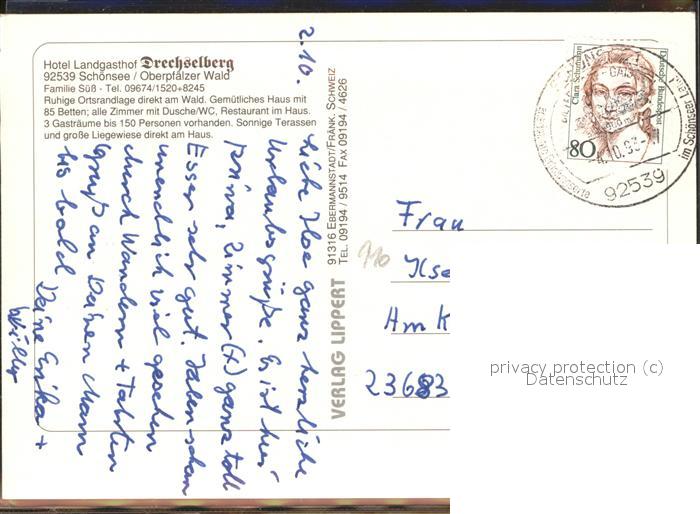 Hotel Landgasthof Drechselberg
92539 Schönsee / Oberpfälzer Wald
Familie Süß - Tel. 09674/1520+8245
Ruhige Ortsrandlage direkt am Wald. Gemütliches Haus mit
85 Betten; alle Zimmer mit Dusche/WC, Restaurant im Haus.
3 Gasträume bis 150 Personen vorhanden. Sonnige Terassen
und große Liegewiese direkt am Haus.
2.10.
Liebe Ilse ganz herzliche
Urlaubsgrüße. Es ist hier
prima, Zimmer (x) ganz toll
Essen sehr gut. Haben schon
unendlich viel gesehen
durch Wandern + Fahrten
Gruß an Deinen Mann
bis bald Deine Erika +
Willy
VERLAG LIPPERT
91316 EBERMANNSTADT/FRÄNK. SCHWEIZ
TEL. 09194 / 9514 FAX 09194 / 4626
Clara Schumann
Deutsche Bundespost
80
92539
im Schönseer Land
Frau
Ilse
Am K
23683
privacy protection (c)
Datenschutz